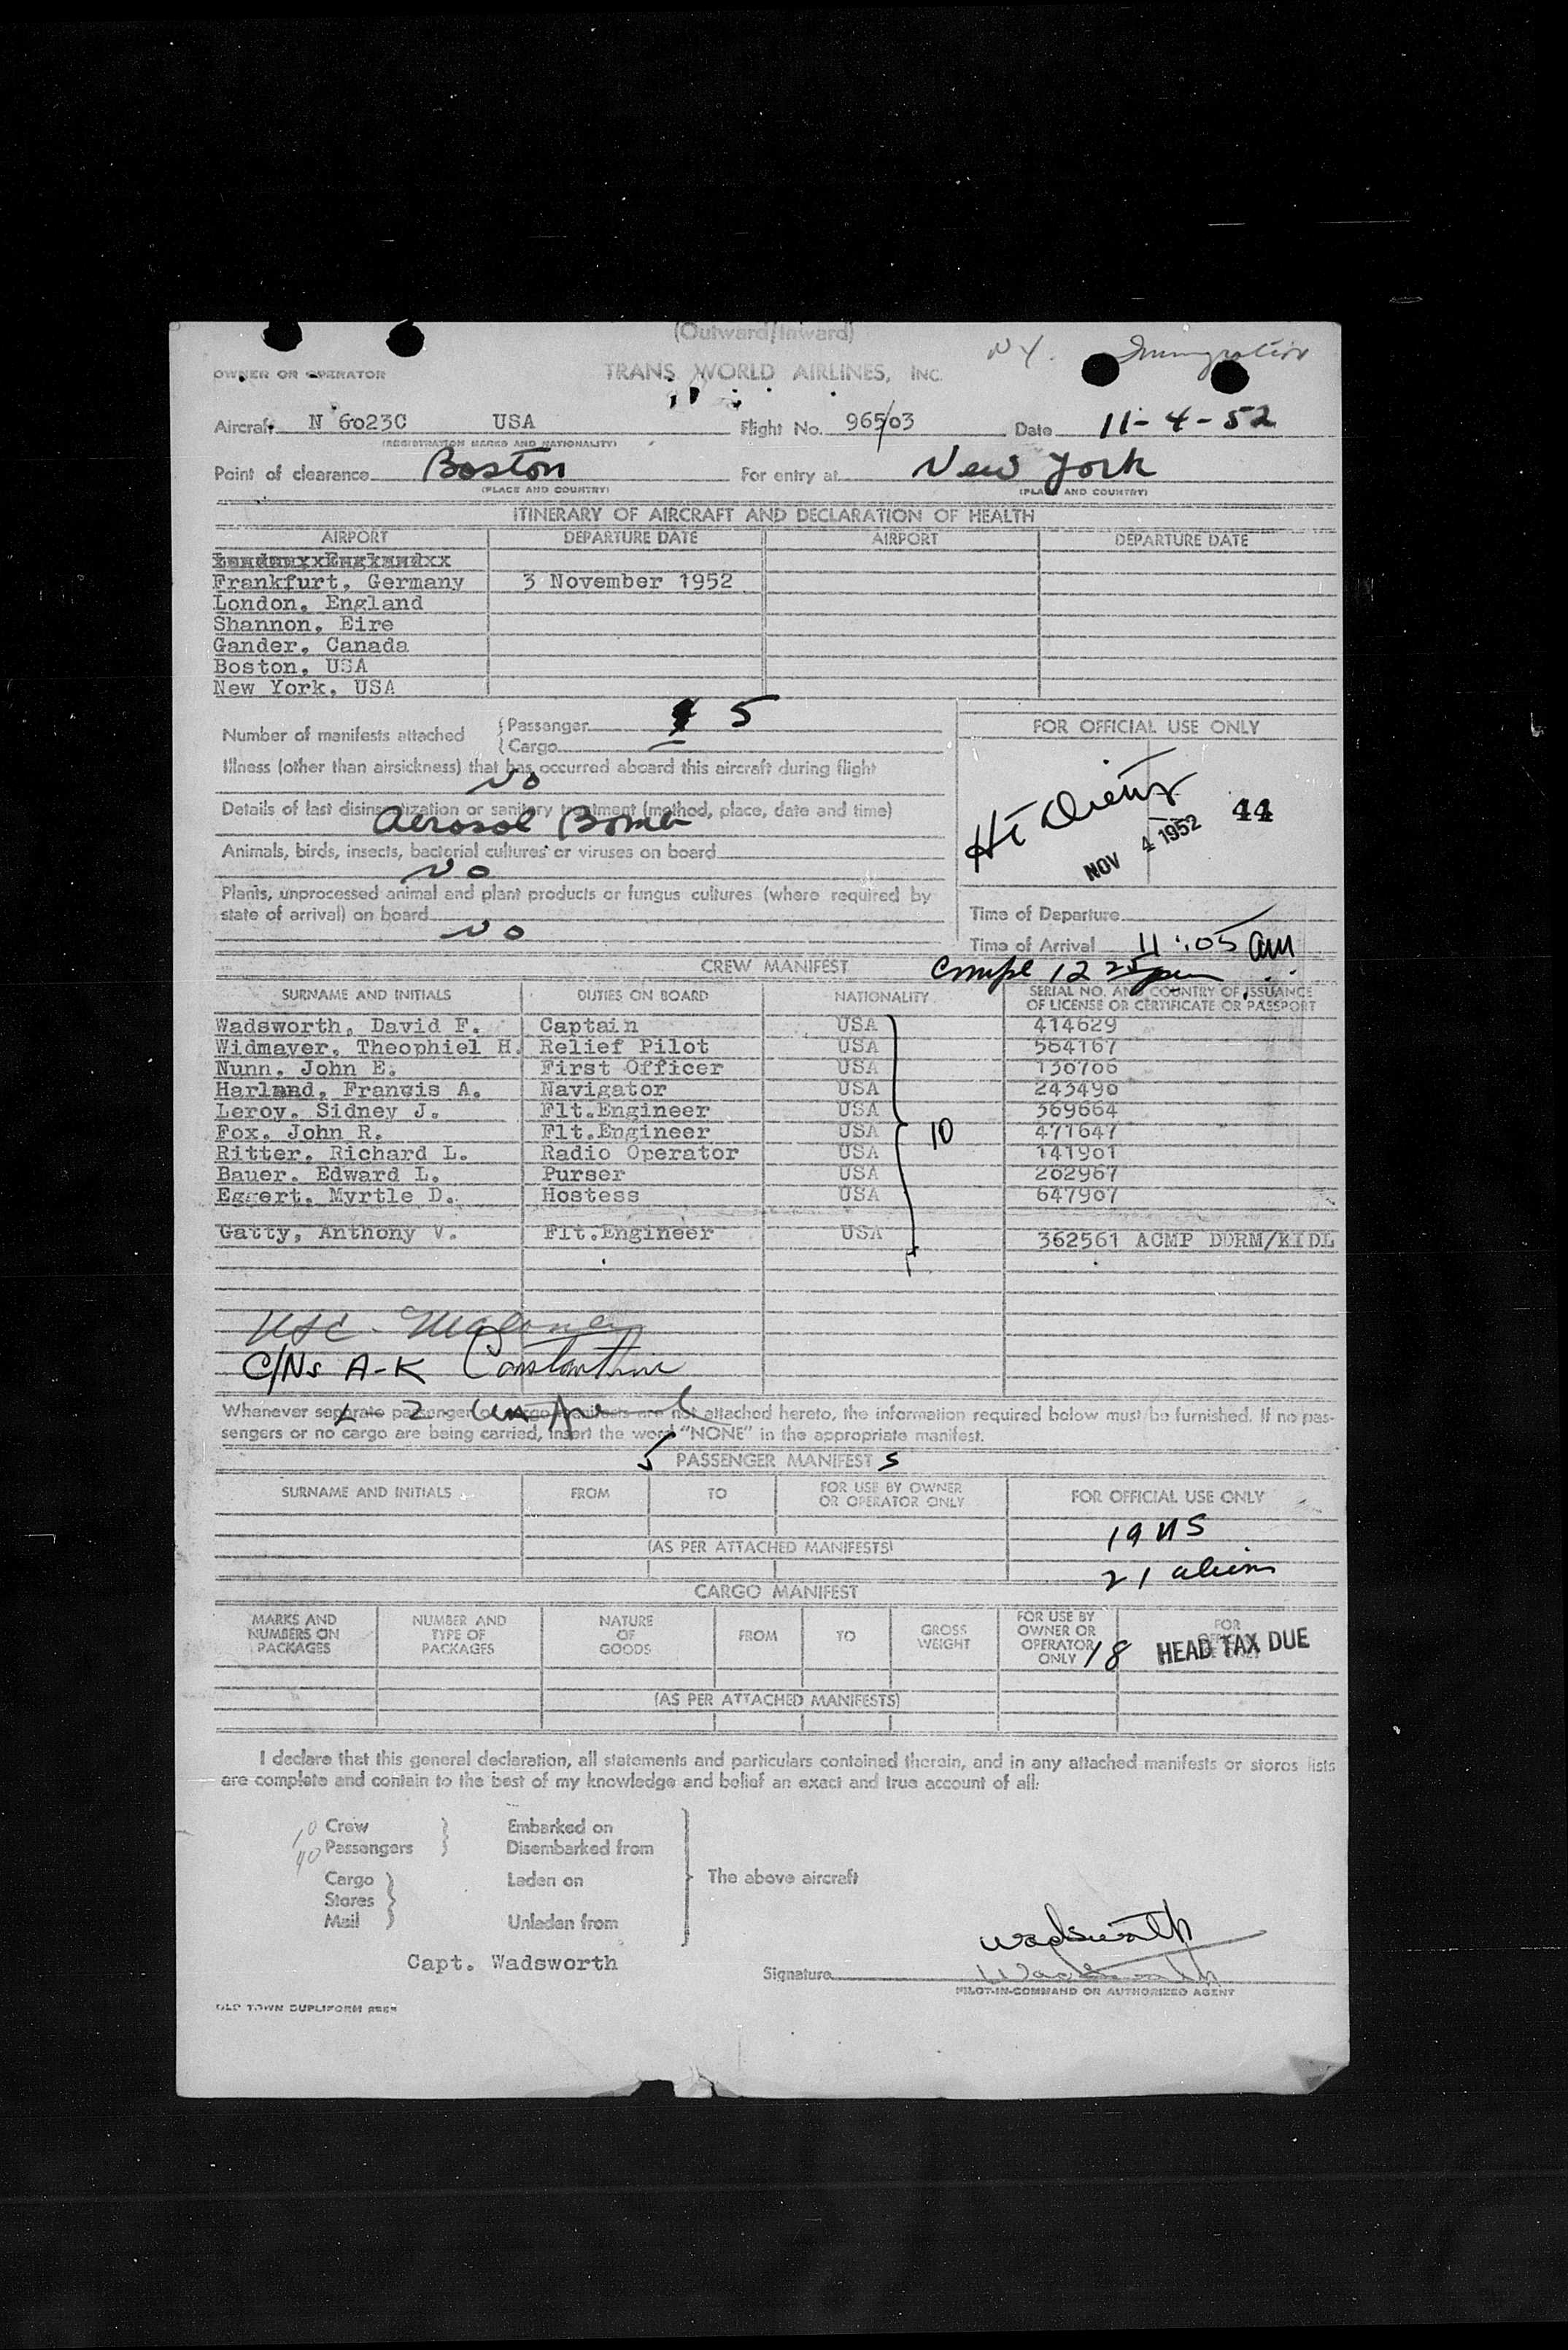 (Outward/Inward)
N Y. Immigration
OWNER OR OPERATOR TRANS WORLD AIRLINES, INC.
Aircraft N 6023C USA Flight No. 965/03 Date 11-4-52
(REGISTRATION MARKS AND NATIONALITY)
Point of clearance Boston For entry at New York
(PLACE AND COUNTRY) (PLACE AND COUNTRY)
ITINERARY OF AIRCRAFT AND DECLARATION OF HEALTH
AIRPORT DEPARTURE DATE AIRPORT DEPARTURE DATE
Frankfurt, Germany 3 November 1952
London, England
Shannon, Eire
Gander, Canada
Boston, USA
New York, USA
Number of manifests attached {Passenger 5
{Cargo —
FOR OFFICIAL USE ONLY
Illness (other than airsickness) that has occurred aboard this aircraft during flight
No
Details of last disinsectization or sanitary treatment (method, place, date and time)
Aerosol Bomb
44
NOV 4 1952
Animals, birds, insects, bacterial cultures or viruses on board
No
Plants, unprocessed animal and plant products or fungus cultures (where required by
state of arrival) on board
No
Time of Departure
Time of Arrival 11:05 am
Compl 12 25 pm
CREW MANIFEST
SURNAME AND INITIALS DUTIES ON BOARD NATIONALITY SERIAL NO. AND COUNTRY OF ISSUANCE
OF LICENSE OR CERTIFICATE OR PASSPORT
Wadsworth, David F. Captain USA 414629
Widmayer, Theophiel H. Relief Pilot USA 584167
Nunn, John E. First Officer USA 130706
Harland, Francis A. Navigator USA 243490
Leroy, Sidney J. Flt.Engineer USA 369664
Fox, John R. Flt.Engineer USA 471647
10
Ritter, Richard L. Radio Operator USA 141901
Bauer, Edward L. Purser USA 202967
Eggert, Myrtle D. Hostess USA 647907
Gatty, Anthony V. Flt.Engineer USA 362561 ACMP DORM/KIDL
USC - Maloney
C/Ns A-K Constantine
L - Z
Whenever separate passenger or cargo manifests are not attached hereto, the information required below must be furnished. If no pas-
sengers or no cargo are being carried, insert the word "NONE" in the appropriate manifest.
5 PASSENGER MANIFEST s
SURNAME AND INITIALS FROM TO FOR USE BY OWNER
OR OPERATOR ONLY FOR OFFICIAL USE ONLY
19 US
(AS PER ATTACHED MANIFESTS)
21 aliens
CARGO MANIFEST
MARKS AND
NUMBERS ON
PACKAGES NUMBER AND
TYPE OF
PACKAGES NATURE
OF
GOODS FROM TO GROSS
WEIGHT FOR USE BY
OWNER OR
OPERATOR
ONLY FOR
18 HEAD TAX DUE
(AS PER ATTACHED MANIFESTS)
I declare that this general declaration, all statements and particulars contained therein, and in any attached manifests or stores lists
are complete and contain to the best of my knowledge and belief an exact and true account of all:
10 Crew } Embarked on
40 Passengers Disembarked from
Cargo } Laden on The above aircraft
Stores
Mail Unladen from
Wadsworth
Capt. Wadsworth
Signature Wadsworth
PILOT-IN-COMMAND OR AUTHORIZED AGENT
OLD TOWN DUPLIFORM